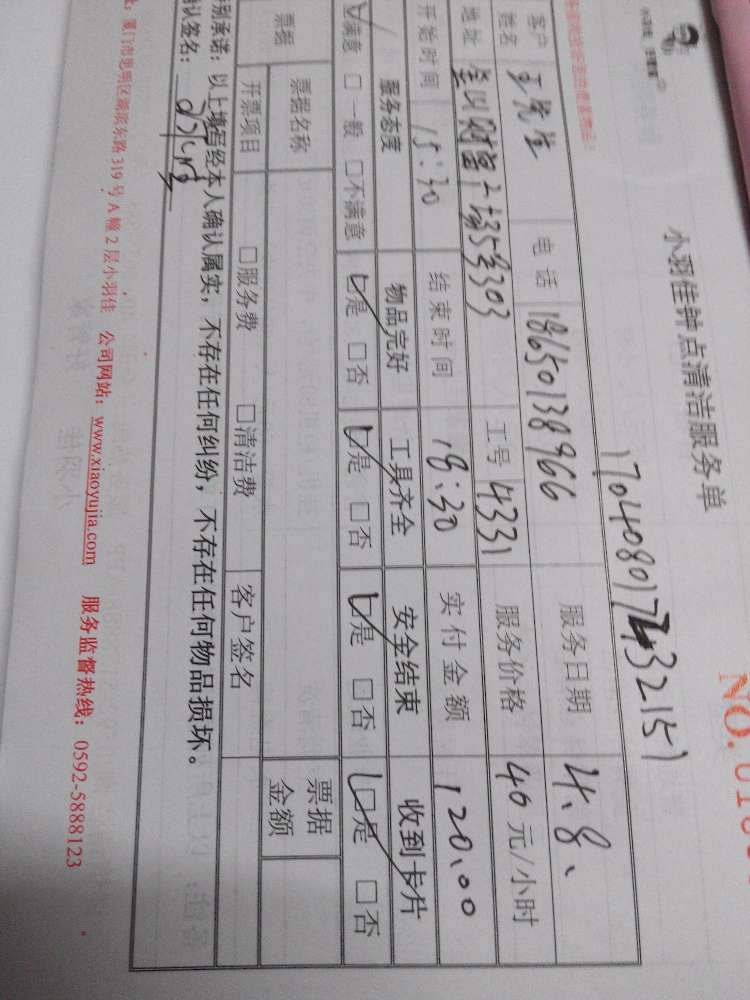 小羽佳钟点清洁服务单
NO.
客户姓名 王先生 电话 18650138966 服务日期 4.8、
地址 303 工号 4331 服务价格 40元/小时
开始时间 15:30 结束时间 18:30 实付金额 120.00
服务态度 物品完好 工具齐全 安全结束 收到卡片
☑满意 □一般 □不满意 ☑是 □否 ☑是 □否 ☑是 □否 ☑是 □否
票据 票据名称 票据金额
开票项目 □服务费 □清洁费 客户签名
别承诺：以上填写经本人确认属实，不存在任何纠纷，不存在任何物品损坏。
认签名：
厦门市思明区湖滨东路319号A幢2层小羽佳 公司网站：www.xiaoyujia.com 服务监督热线：0592-5888123